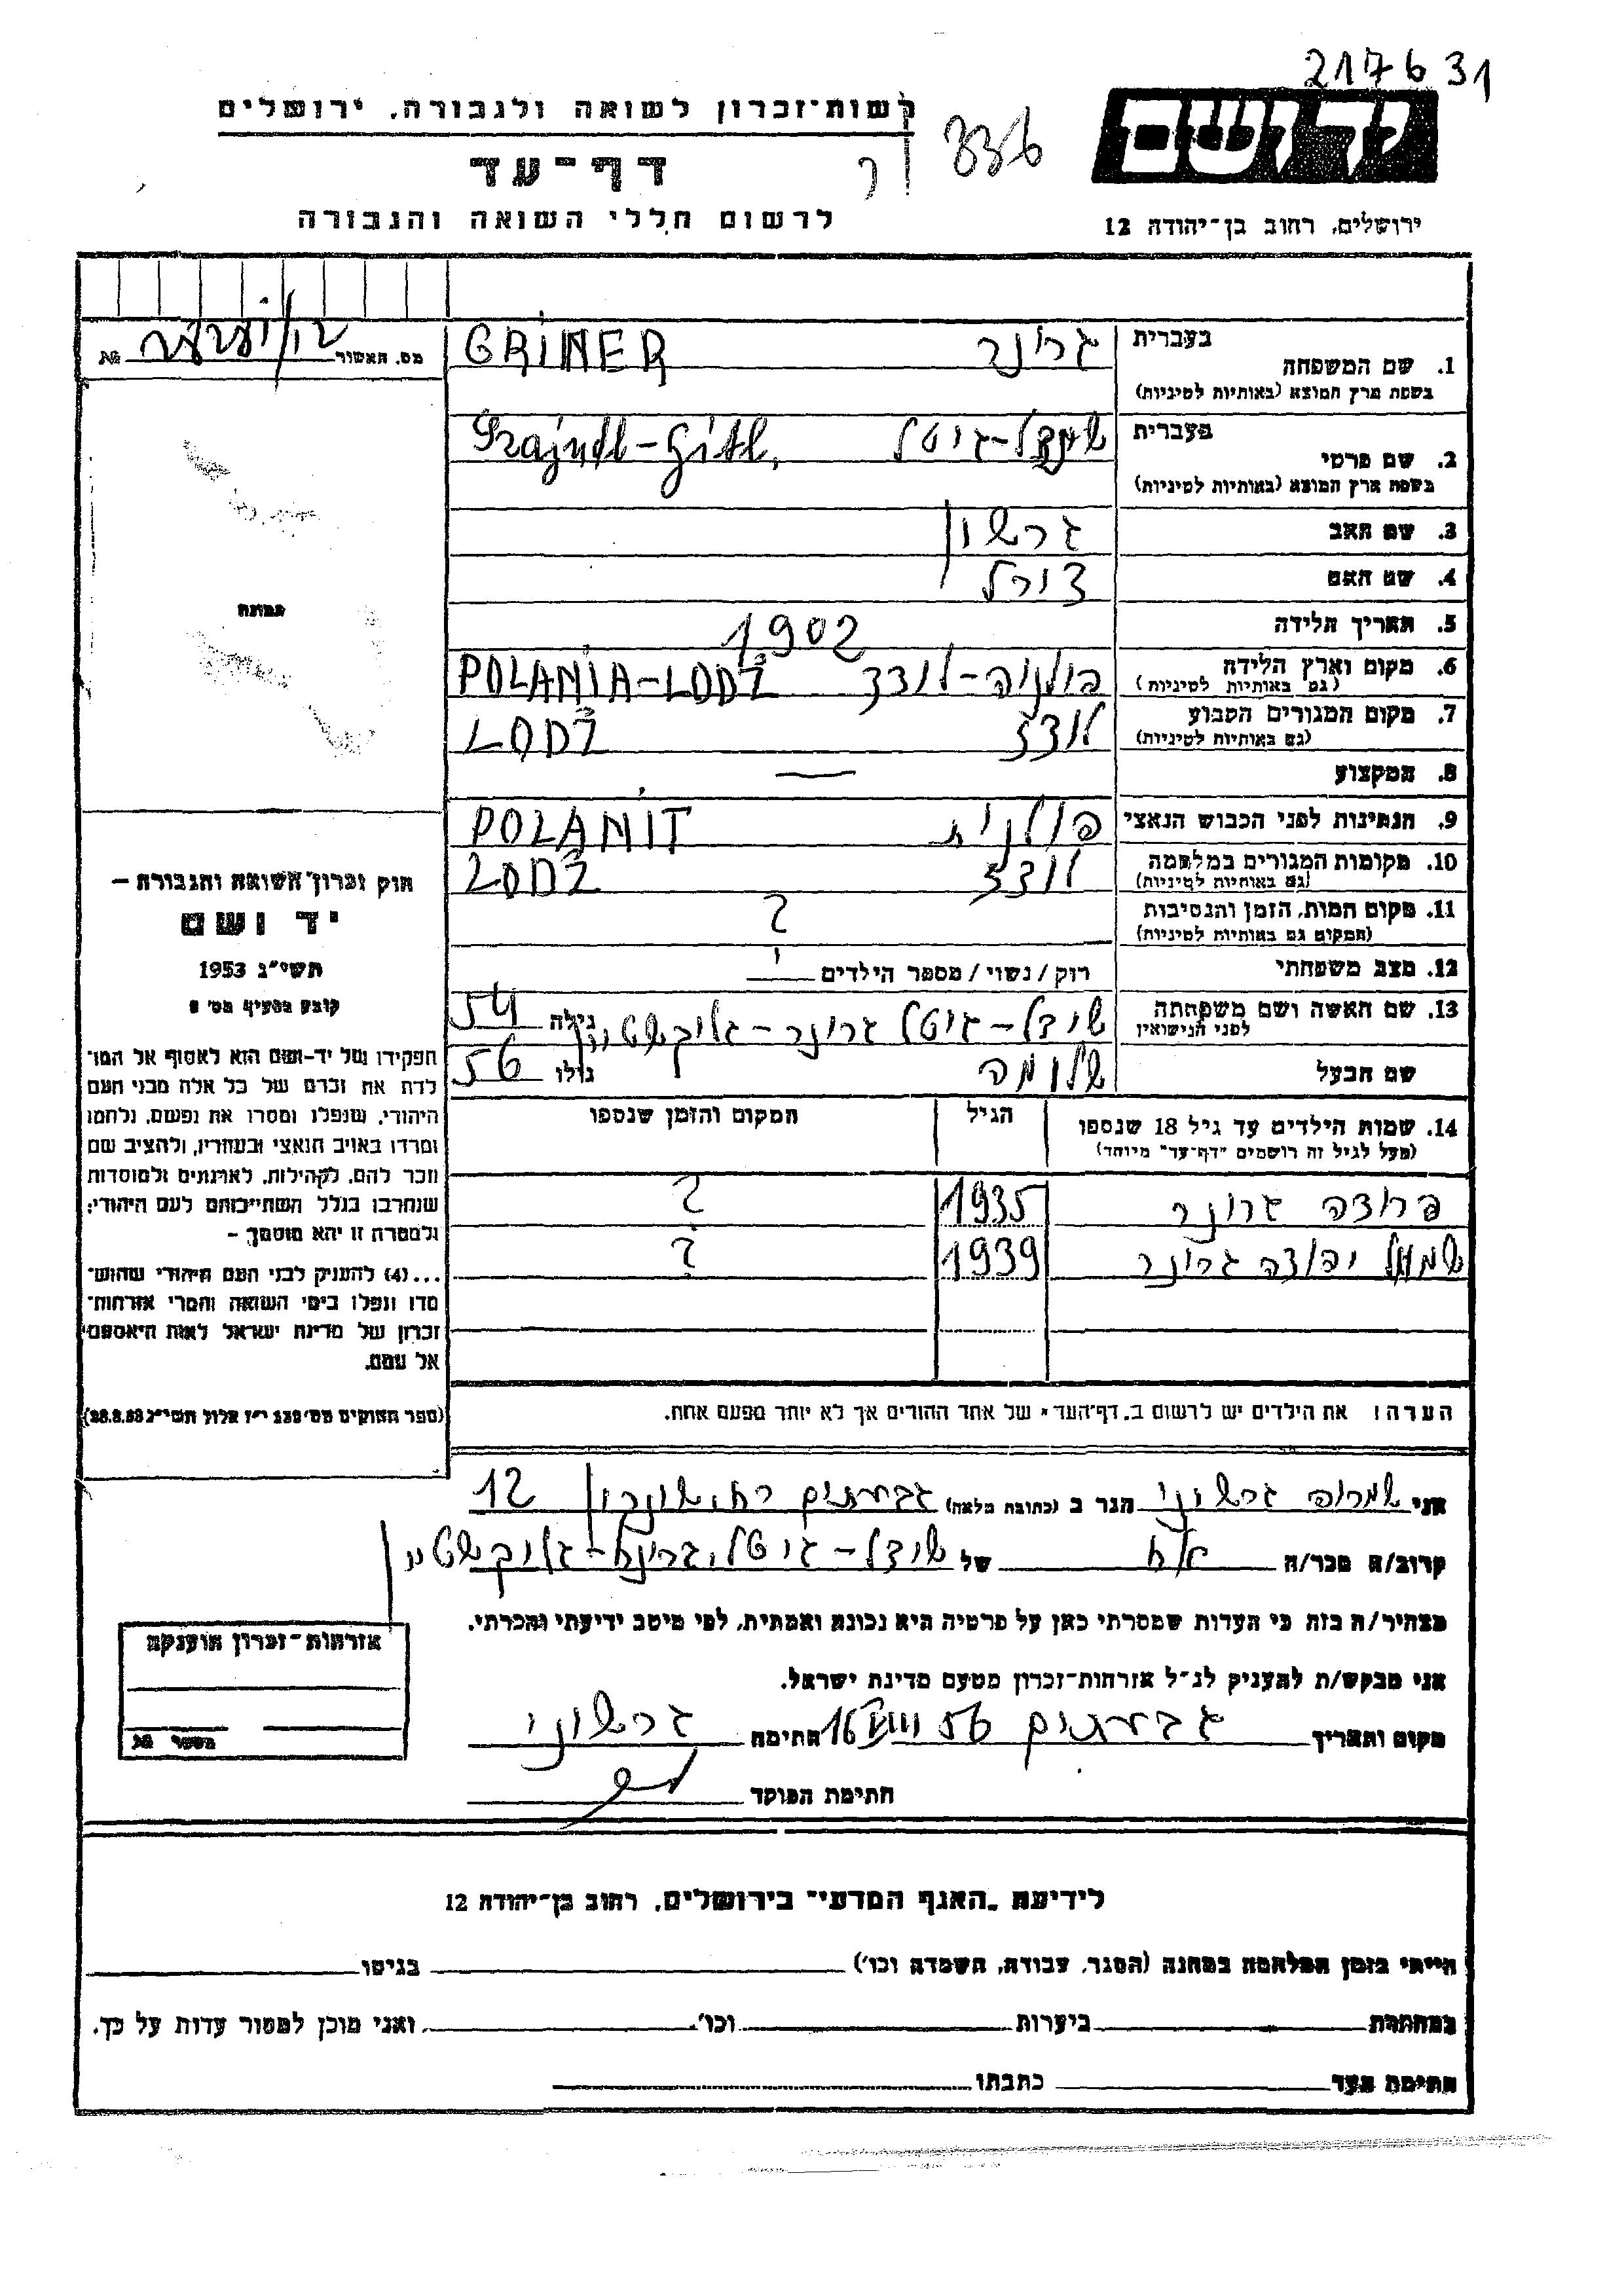 217631
רשות-זכרון לשואה ולגבורה, ירושלים
336
יד ושם
דף-עד
לרשום חללי השואה והגבורה
ירושלים, רחוב בן-יהודה 12
מס. האשור № 
1. שם המשפחה
בעברית גרונר
בשפת ארץ המוצא (באותיות לטיניות) GRINER
2. שם פרטי
בעברית שינדל-גיטל
בשפת ארץ המוצא (באותיות לטיניות) Szajndl-Gitl,
3. שם האב גרשון
4. שם האם
5. תאריך הלידה 1902
6. מקום וארץ הלידה פולניה-לודז POLANIA-LODŻ
(גם באותיות לטיניות)
7. מקום המגורים הקבוע לודז LODŻ
(גם באותיות לטיניות)
8. המקצוע —
9. הנתינות לפני הכבוש הנאצי פולנית POLANIT
10. מקומות המגורים במלחמה לודז LODŻ
(גם באותיות לטיניות)
11. מקום המות, הזמן והנסיבות ?
(המקום גם באותיות לטיניות)
12. מצב משפחתי רוק / נשוי / מספר הילדים
13. שם האשה ושם משפחתה שינדל-גיטל גרונר-גליקשטיין גילה 54
לפני הנישואין
שם הבעל שלומה גילו 56
14. שמות הילדים עד גיל 18 שנספו הגיל המקום והזמן שנספו
(מעל לגיל זה רושמים "דף-עד" מיוחד)
גרונר 1935 ?
שמואל יהודה גרונר 1939 ?
הערה: את הילדים יש לרשום ב"דף-העד" של אחד ההורים אך לא יותר מפעם אחת.
תמונה
חוק זכרון השואה והגבורה –
יד ושם
תשי"ג 1953
קובע בסעיף מס' 2
תפקידו של יד-ושם הוא לאסוף אל המו-
לדת את זכרם של כל אלה מבני העם
היהודי, שנפלו ומסרו את נפשם, נלחמו
ומרדו באויב הנאצי ובעוזריו, ולהציב שם
וזכר להם, לקהילות, לארגונים ולמוסדות
שנחרבו בגלל השתייכותם לעם היהודי;
ולמטרה זו יהא מוסמך –
...(4) להעניק לבני העם היהודי שהוש-
מדו ונפלו בימי השואה והמרי אזרחות-
זכרון של מדינת ישראל לאות היאספם
אל עמם.
(ספר החוקים מס' 132 י"ז אלול תשי"ג 28.8.53)
אני גרשוני הגר ב (כתובת מלאה) גבעתיים 12
קרוב/ה מכר/ה אח של שינדל-גיטל גרינר-גליקשטיין
מצהיר/ה בזה כי העדות שמסרתי כאן על פרטיה היא נכונה ואמתית, לפי מיטב ידיעתי והכרתי.
אני מבקש/ת להעניק לנ"ל אזרחות-זכרון מטעם מדינת ישראל.
מקום ותאריך גבעתיים 16 VIII 56 חתימה גרשוני
חתימת הפוקד
אזרחות-זכרון הוענקה
מספר №
לידיעת "האגף המדעי" בירושלים, רחוב בן-יהודה 12
הייתי בזמן המלחמה במחנה (הסגר, עבודה, השמדה וכו') בגיטו
במחתרת ביערות וכו' ואני מוכן למסור עדות על כך.
חתימת העד כתבתו